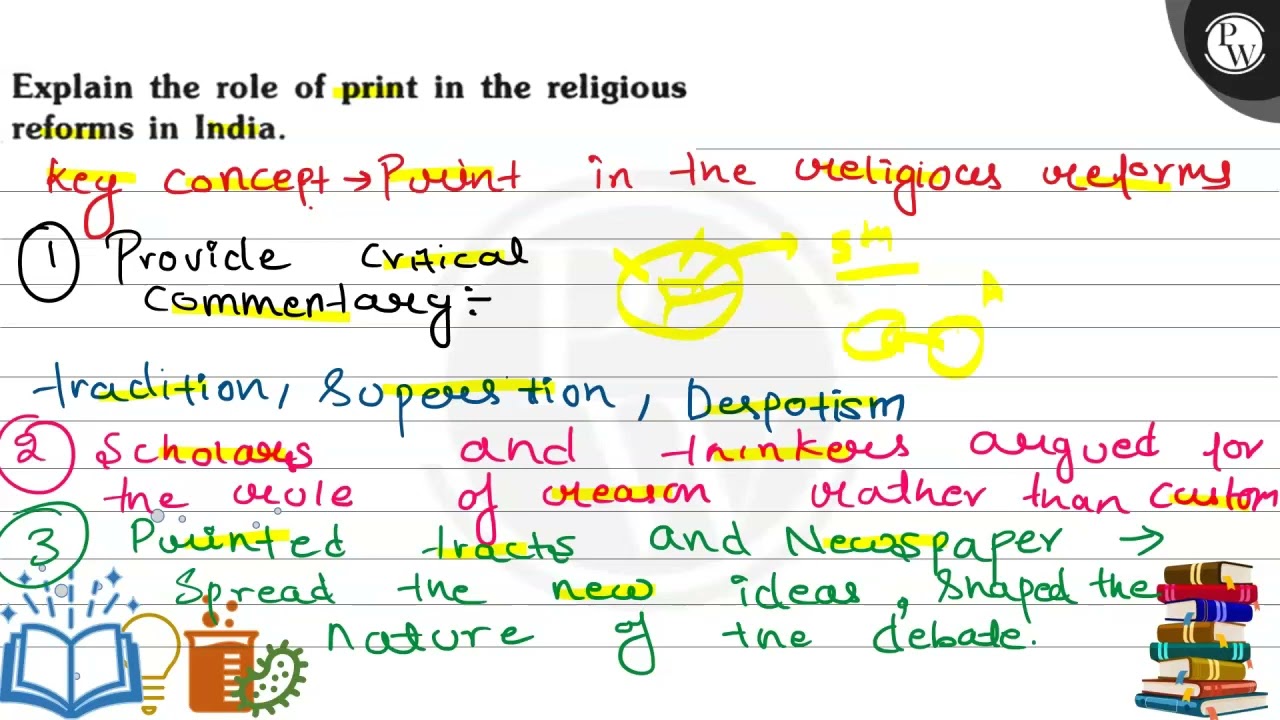 PW
Explain the role of print in the religious
reforms in India.
Key concept → Print in the religious reforms
1 Provide critical
commentary:-
tradition, Superstion, Despotism
2 Scholars and thinkers argued for
the rule of reason rather than custom
3 Printed tracts and Newspaper →
Spread the new ideas, shaped the
nature of the debate.